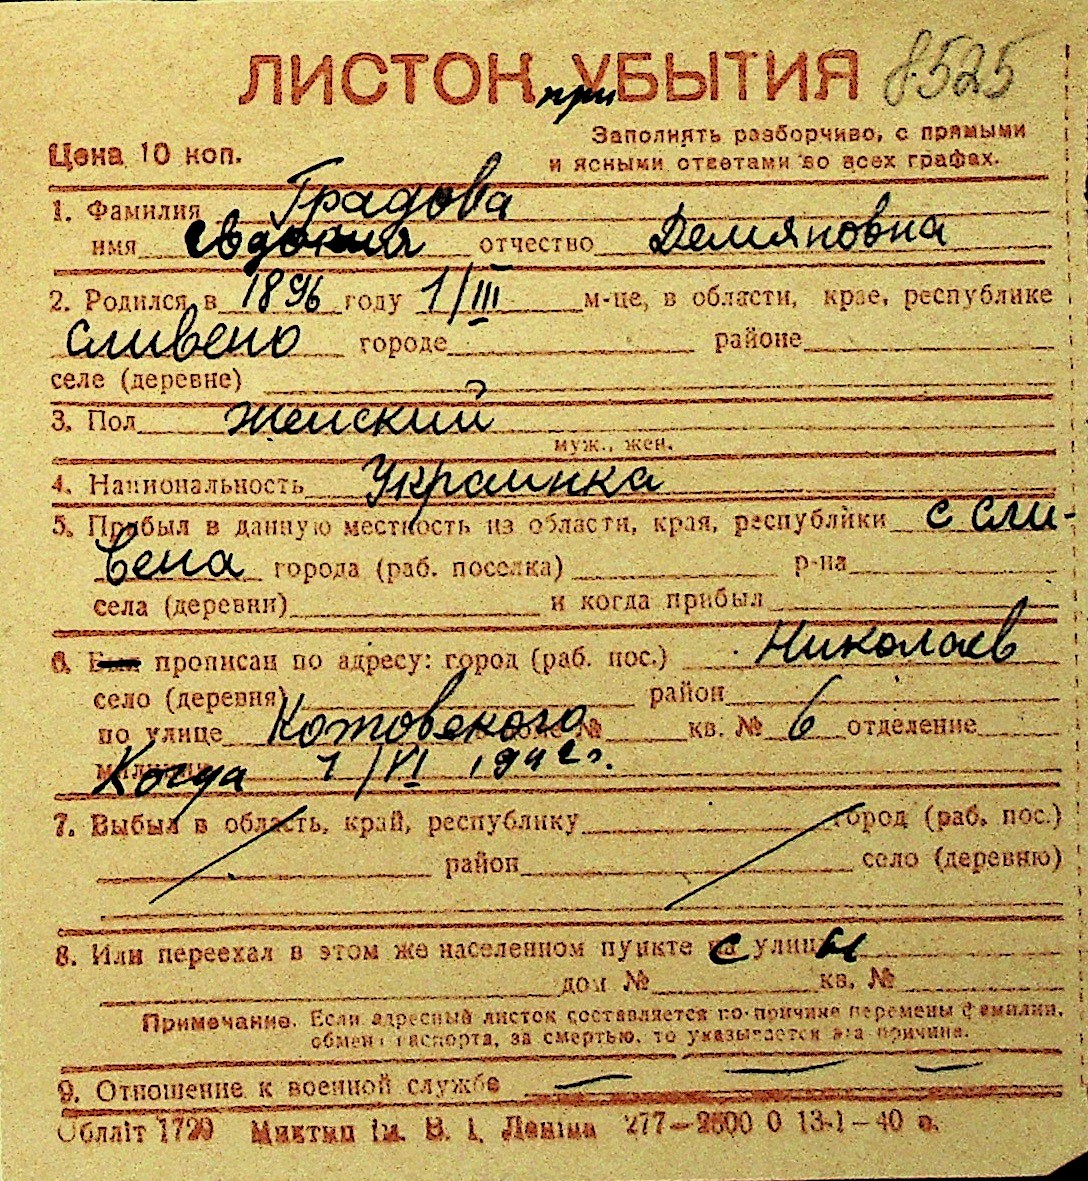 ЛИСТОК прибЫТИЯ 8525
Цена 10 коп.
Заполнять разборчиво, с прямыми
и ясными ответами во всех графах.
1. Фамилия Градова
имя Евдокия отчество Демяновна
2. Родился в 1896 году 1/III м-це, в области, крае, республике
Сливено городе районе
селе (деревне)
3. Пол женский
муж., жен.
4. Национальность Украинка
5. Прибыл в данную местность из области, края, республики с Сли-
вена города (раб. поселка) р-на
села (деревни) и когда прибыл
6. прописан по адресу: город (раб. пос.) Николаев
село (деревня) район
по улице Котовского № кв. № 6 отделение
Когда 1/VI 1942 г.
7. Выбыл в область, край, республику город (раб. пос.)
район село (деревню)
8. Или переехал в этом же населенном пункте с улицы
дом № кв. №
Примечание. Если адресный листок составляется по причине перемены фамилии,
обмена паспорта, за смертью, то указывается эта причина.
9. Отношение к военной службе
Обллiт 1720 iм. В. I. Ленiна 277—2500 0 13-1—40 в.